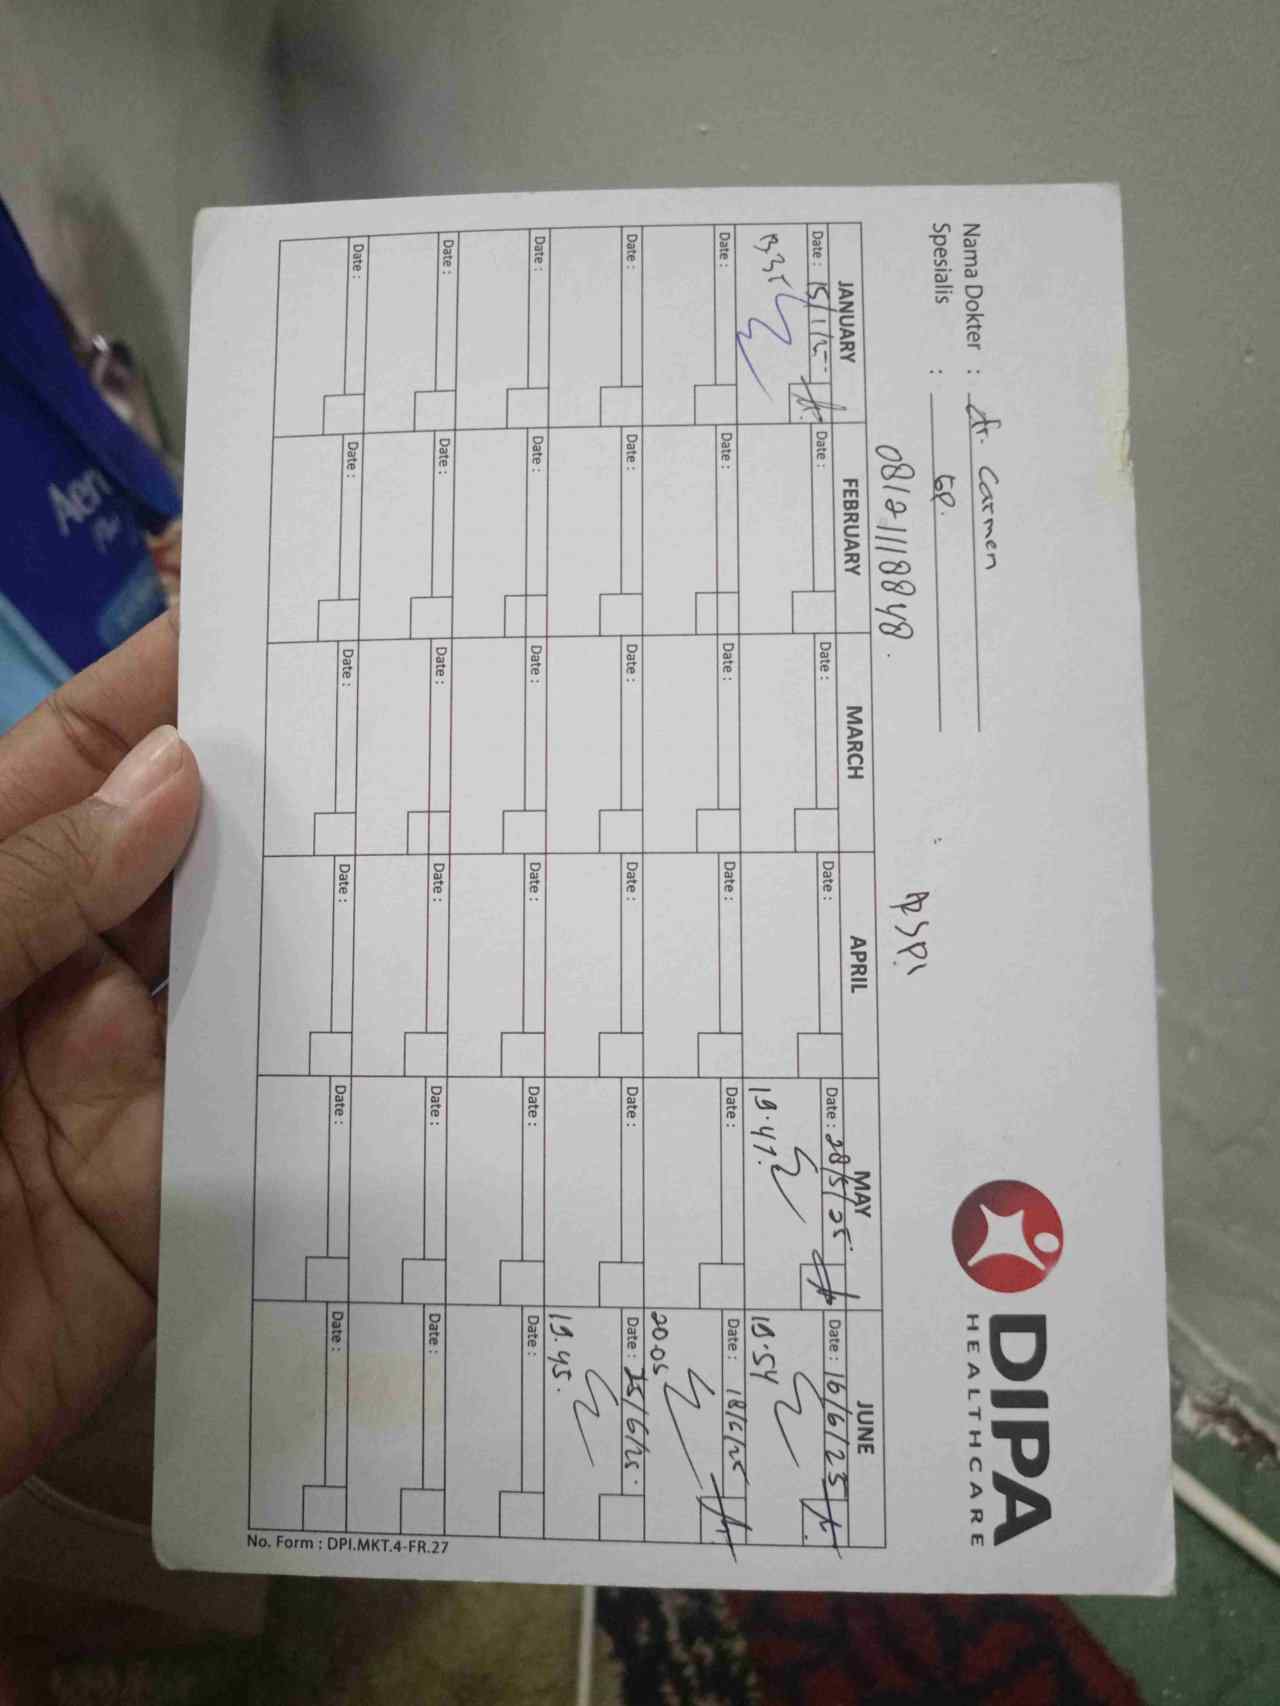 Nama Dokter : dr. Carmen
Spesialis : GP.
DIPA
HEALTHCARE
081211118848.
JANUARY FEBRUARY MARCH APRIL MAY JUNE
Date : 15/1/25 Date : Date : Date : Date : 28/5/25 Date : 16/6/25
19.47. 19.54
Date : Date : Date : Date : Date : Date : 18/6/25
20.05
Date : Date : Date : Date : Date : Date : 25/6/25.
19.45.
Date : Date : Date : Date : Date : Date :
Date : Date : Date : Date : Date : Date :
Date : Date : Date : Date : Date : Date :
No. Form : DPI.MKT.4-FR.27
Aeri